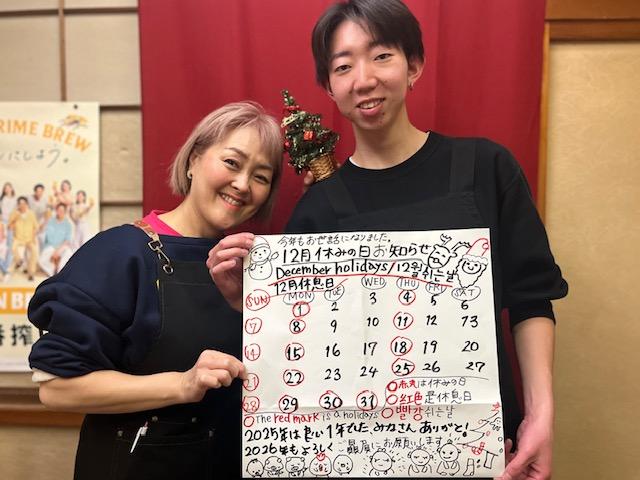 PRIME BREW
にしよう。
N BEER
番搾
今年もお世話になりました。
12月休みの日お知らせ
December holidays/12월 쉬는날
12月休息日
SUN MON TUE WED THU FRI SAT
1 2 3 4 5 6
7 8 9 10 11 12 13
14 15 16 17 18 19 20
21 22 23 24 25 26 27
28 29 30 31
○赤丸は休みの日
○紅色是休息日
○The red mark is a holidays ○빨강 쉬는날
2025年は良い1年でした、みなさんありがと!
2026年もよろしくご贔屓にお願いします